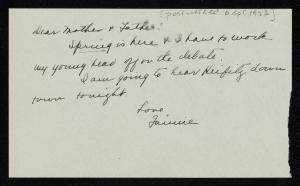 [postmarked 6 Apr. 1932]
Dear Mother & Father:
Spring is here & I have to work
my young head off on the debate.
I am going to hear Heifitz down
town tonight
Love
Fannie